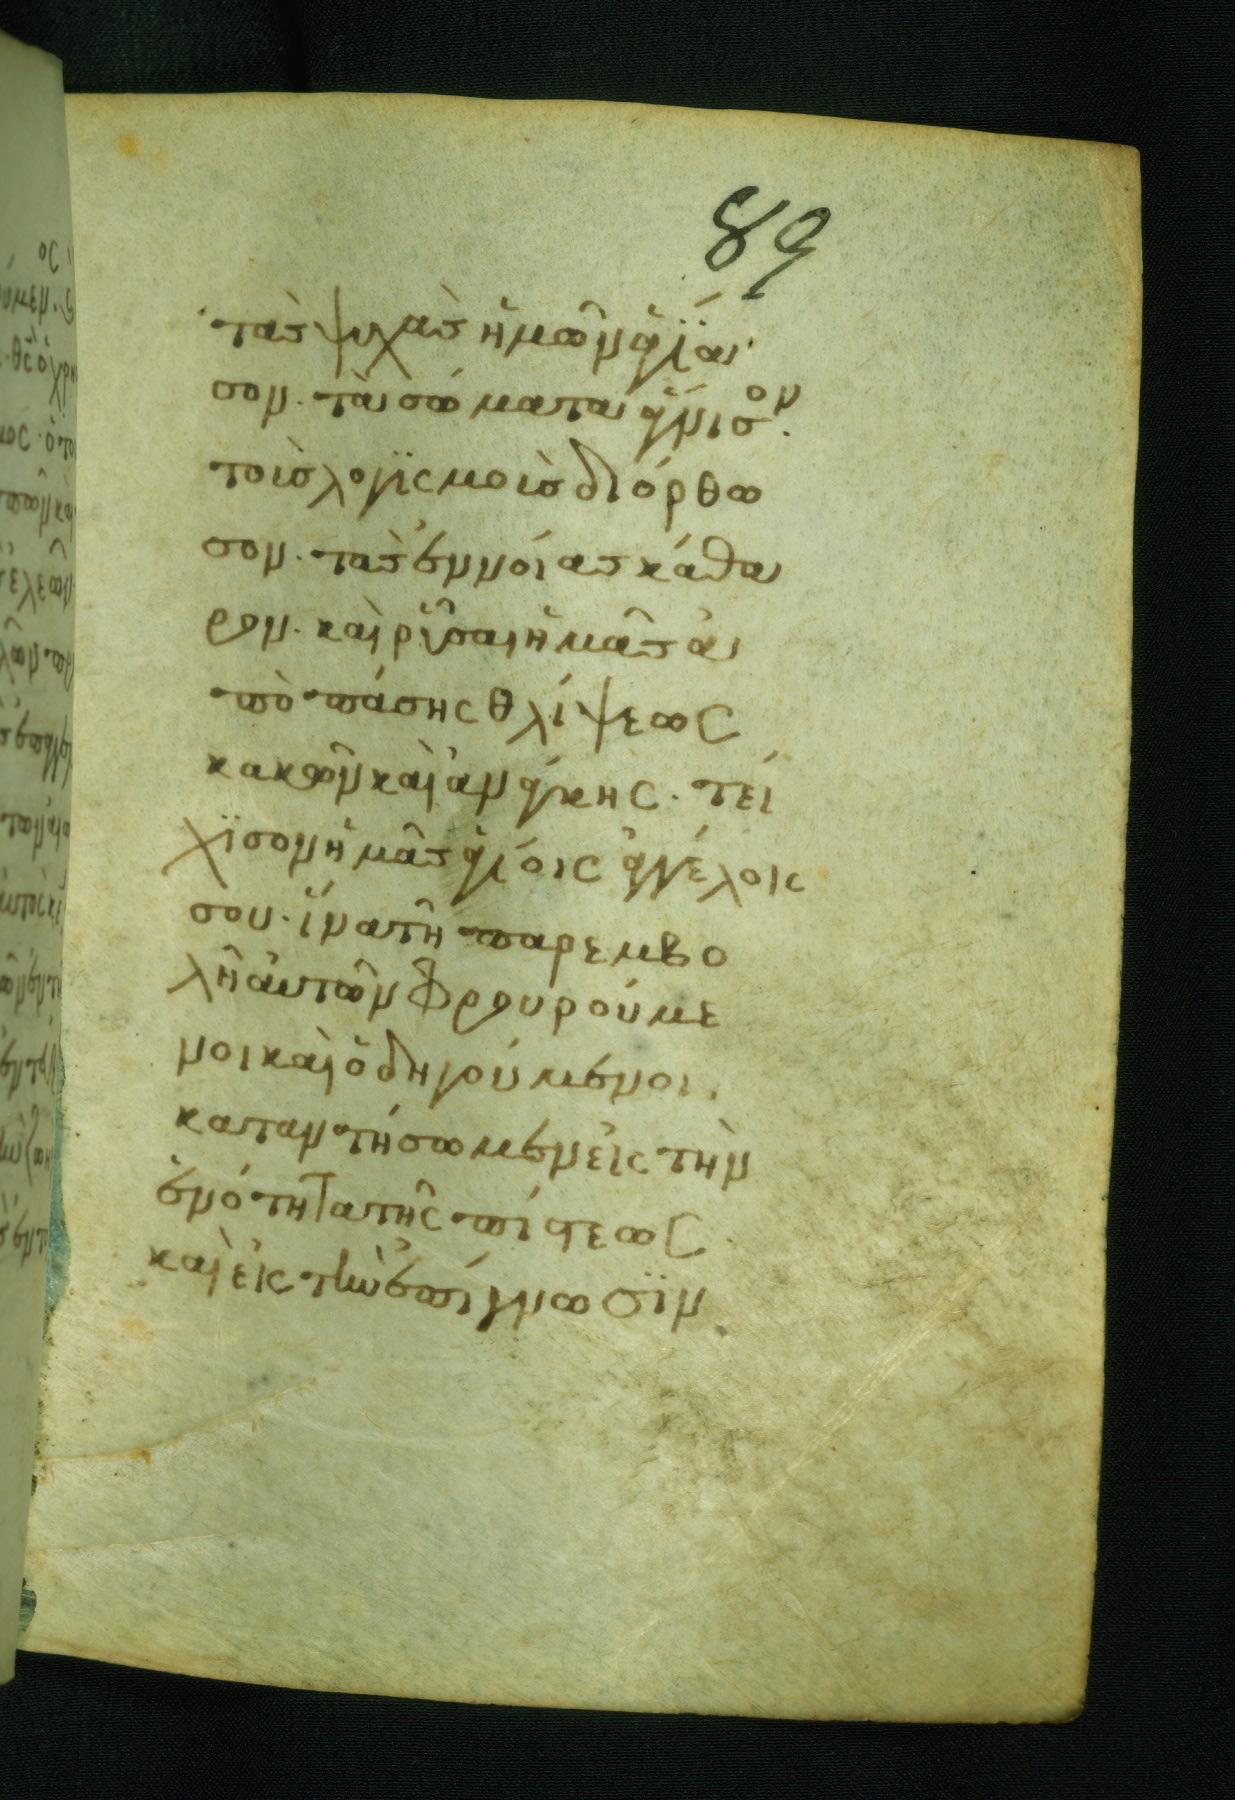 89
τὰς ψυχὰς ἡμῶν ἁγία
σον· τὰ σώματα ἅγνισον·
τοὺς λογϊςμοὺς διόρθω
σον· τὰς ἐννοίας κάθα
ρον· καὶ ῥῦσαι ἡμᾶς ἀ
πὸ πάσης θλίψεως
κακῶν καὶ ἀνάγκης· τεί
χϊσον ἡμᾶς ἁγίοις ἀγγέλοις
σου· ἵνα τῆ παρεμβο
λῆ αὐτῶν φρουρούμε
νοι καὶ ὁδηγούμενοι·
καταντήσωμεν εἰς τὴν
ἑνότητα τῆς πίστεως
καὶ εἰς τὴν ἐπίγνωσϊν